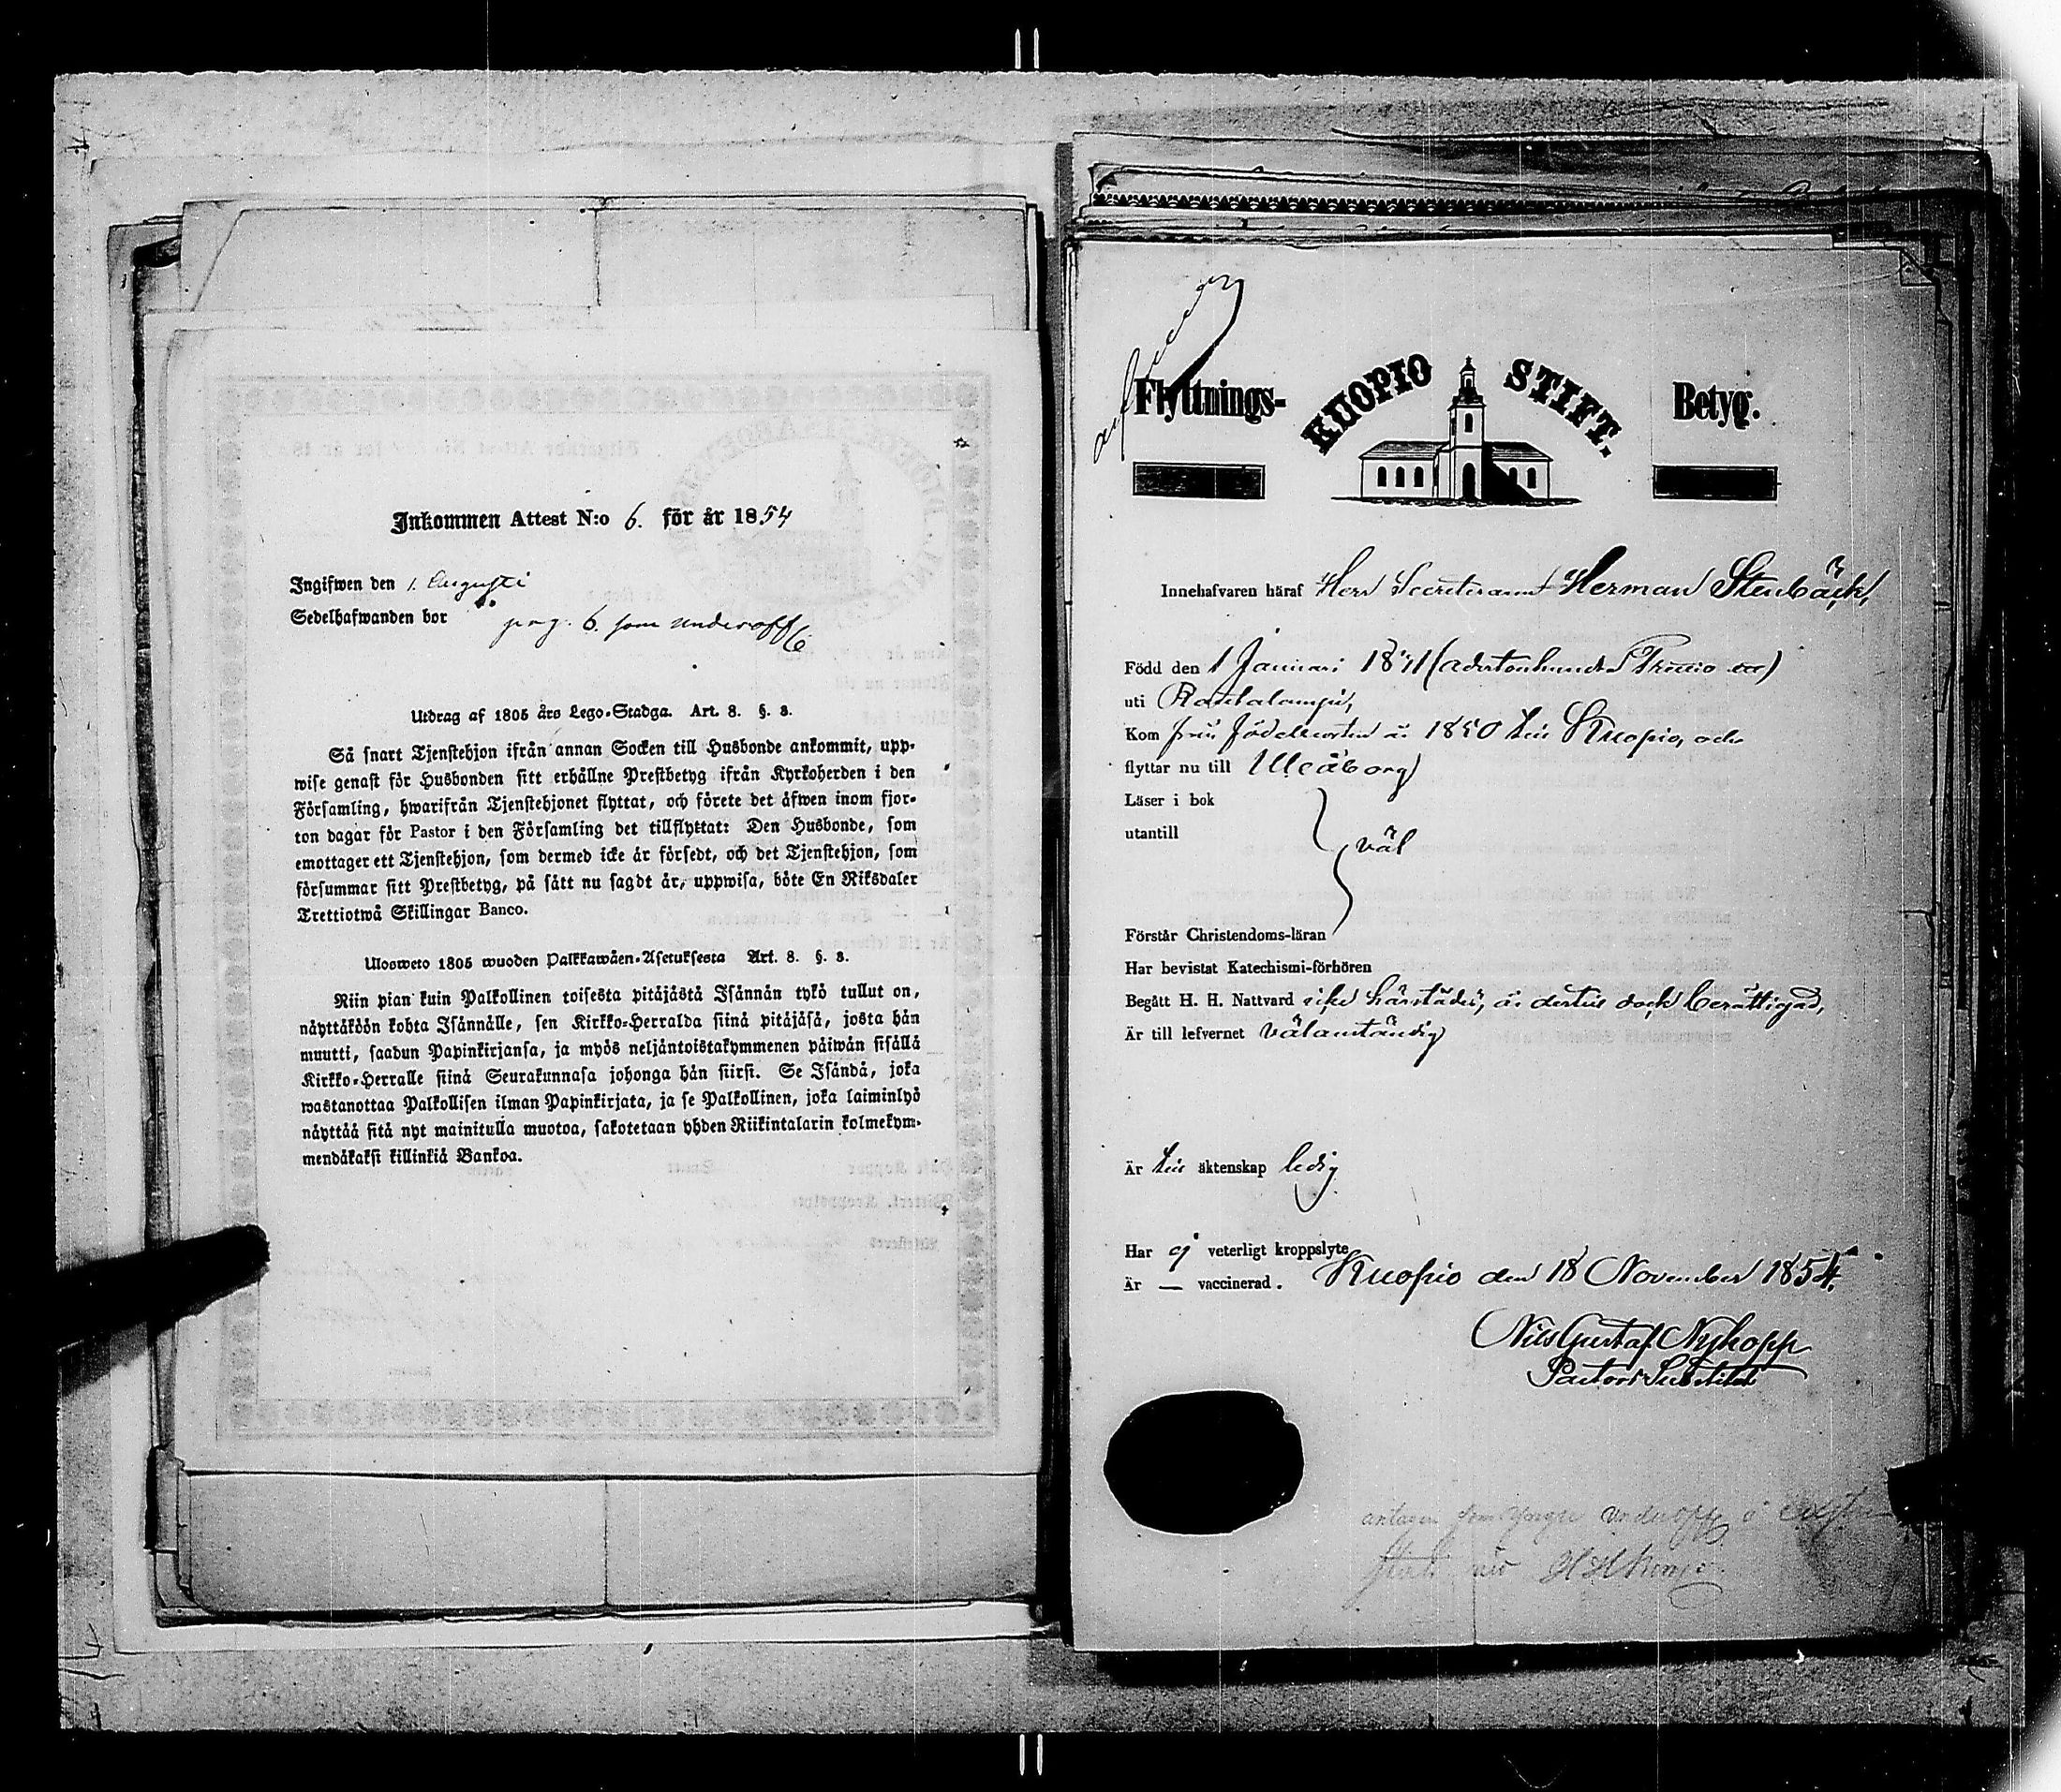 Inkommen Attest N:o 6. för år 1854
Ingifwen den 1. Augusti
Sedelhafwanden bor pag. 6. som underoff
Utdrag af 1805 års Lego-Stadga. Art. 8. §. 3.
Så snart Tjenstehjon ifrån annan Socken till Husbonde ankommit, upp-
wise genast för Husbonden sitt erhållne Prestbetyg ifrån Kyrkoherden i den
Församling, hwarifrån Tjenstehjonet flyttat, och förete det äfwen inom fjor-
ton dagar för Pastor i den Församling det tillflyttat: Den Husbonde, som
emottager ett Tjenstehjon, som dermed icke är försedt, och det Tjenstehjon, som
försummar sitt Prestbetyg, på sätt nu sagdt är, uppwisa, böte En Riksdaler
Trettiotwå Skillingar Banco.
Ulosweto 1805 wuoden Palkkawäen-Asetuksesta Art. 8. §. 3.
Niin pian kuin Palkollinen toisesta pitäjästä Isännän tykö tullut on,
näyttäköön kohta Isännälle, sen Kirkko-Herralda siinä pitäjäsä, josta hän
muutti, saadun Papinkirjansa, ja myös neljäntoistakymmenen päiwän sisällä
Kirkko-Herralle siinä Seurakunnasa johonga hän siirsi. Se Isändä, joka
wastanottaa Palkollisen ilman Papinkirjata, ja se Palkollinen, joka laiminlyö
näyttää sitä nyt mainitulla muotoa, sakotetaan yhden Riikintalarin kolmekym-
mendäkaksi killinkiä Bankoa.
Flyttnings- KUOPIO STIFT. Betyg.
Innehafvaren häraf Herr Secreteraren Herman Stenbäck,
Född den 1 Januari 18 (adertonhundra)
uti Rautalampi,
Kom från födelseorten år 1850 till Kuopio, och
flyttar nu till Uleåborg
Läser i bok
utantill väl
Förstår Christendoms-läran
Har bevistat Katechismi-förhören
Begått H. H. Nattvard icke härstädes, är dertill dock berättigad,
Är till lefvernet välanständig
Är till äktenskap ledig
Har ej veterligt kroppslyte
Är — vaccinerad. Kuopio den 18 November 1854.
Nils Gustaf Nykopp
Pastors Substitut
antagen som yngre underoff